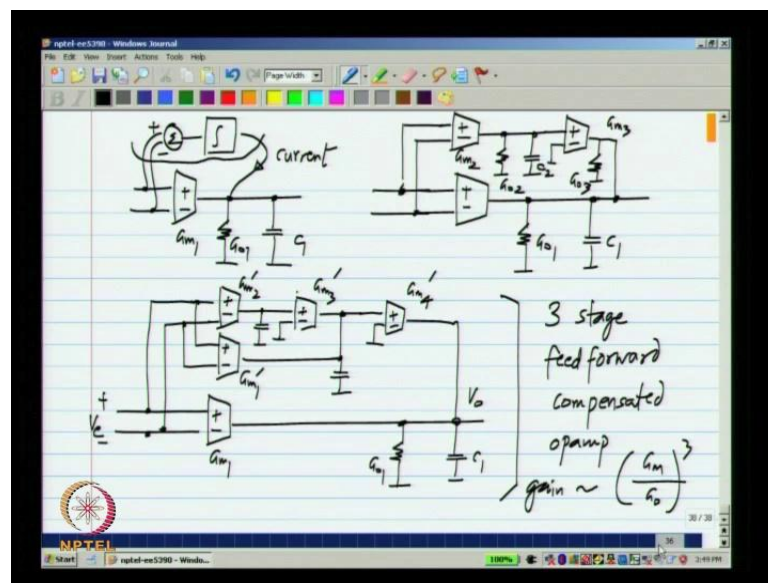 nptel-ee5390 - Windows Journal
File Edit View Insert Actions Tools Help
Page Width
B I
+ Σ ∫
-
current
+ - Gm1
Go1 C1
+ - Gm2
Go2 C2
+ - Gm3
Go3
+ -
Go1 C1
+ - Gm2'
+ - Gm3'
+ - Gm4'
+ - Gm1'
+ Ve -
+ - Gm1
Vo
Go1 C1
3 stage
feed forward
compensated
opamp
gain ~ (Gm/Go)^3
38 / 38
36
NPTEL
Start nptel-ee5390 - Windo... 100% 3:49 PM